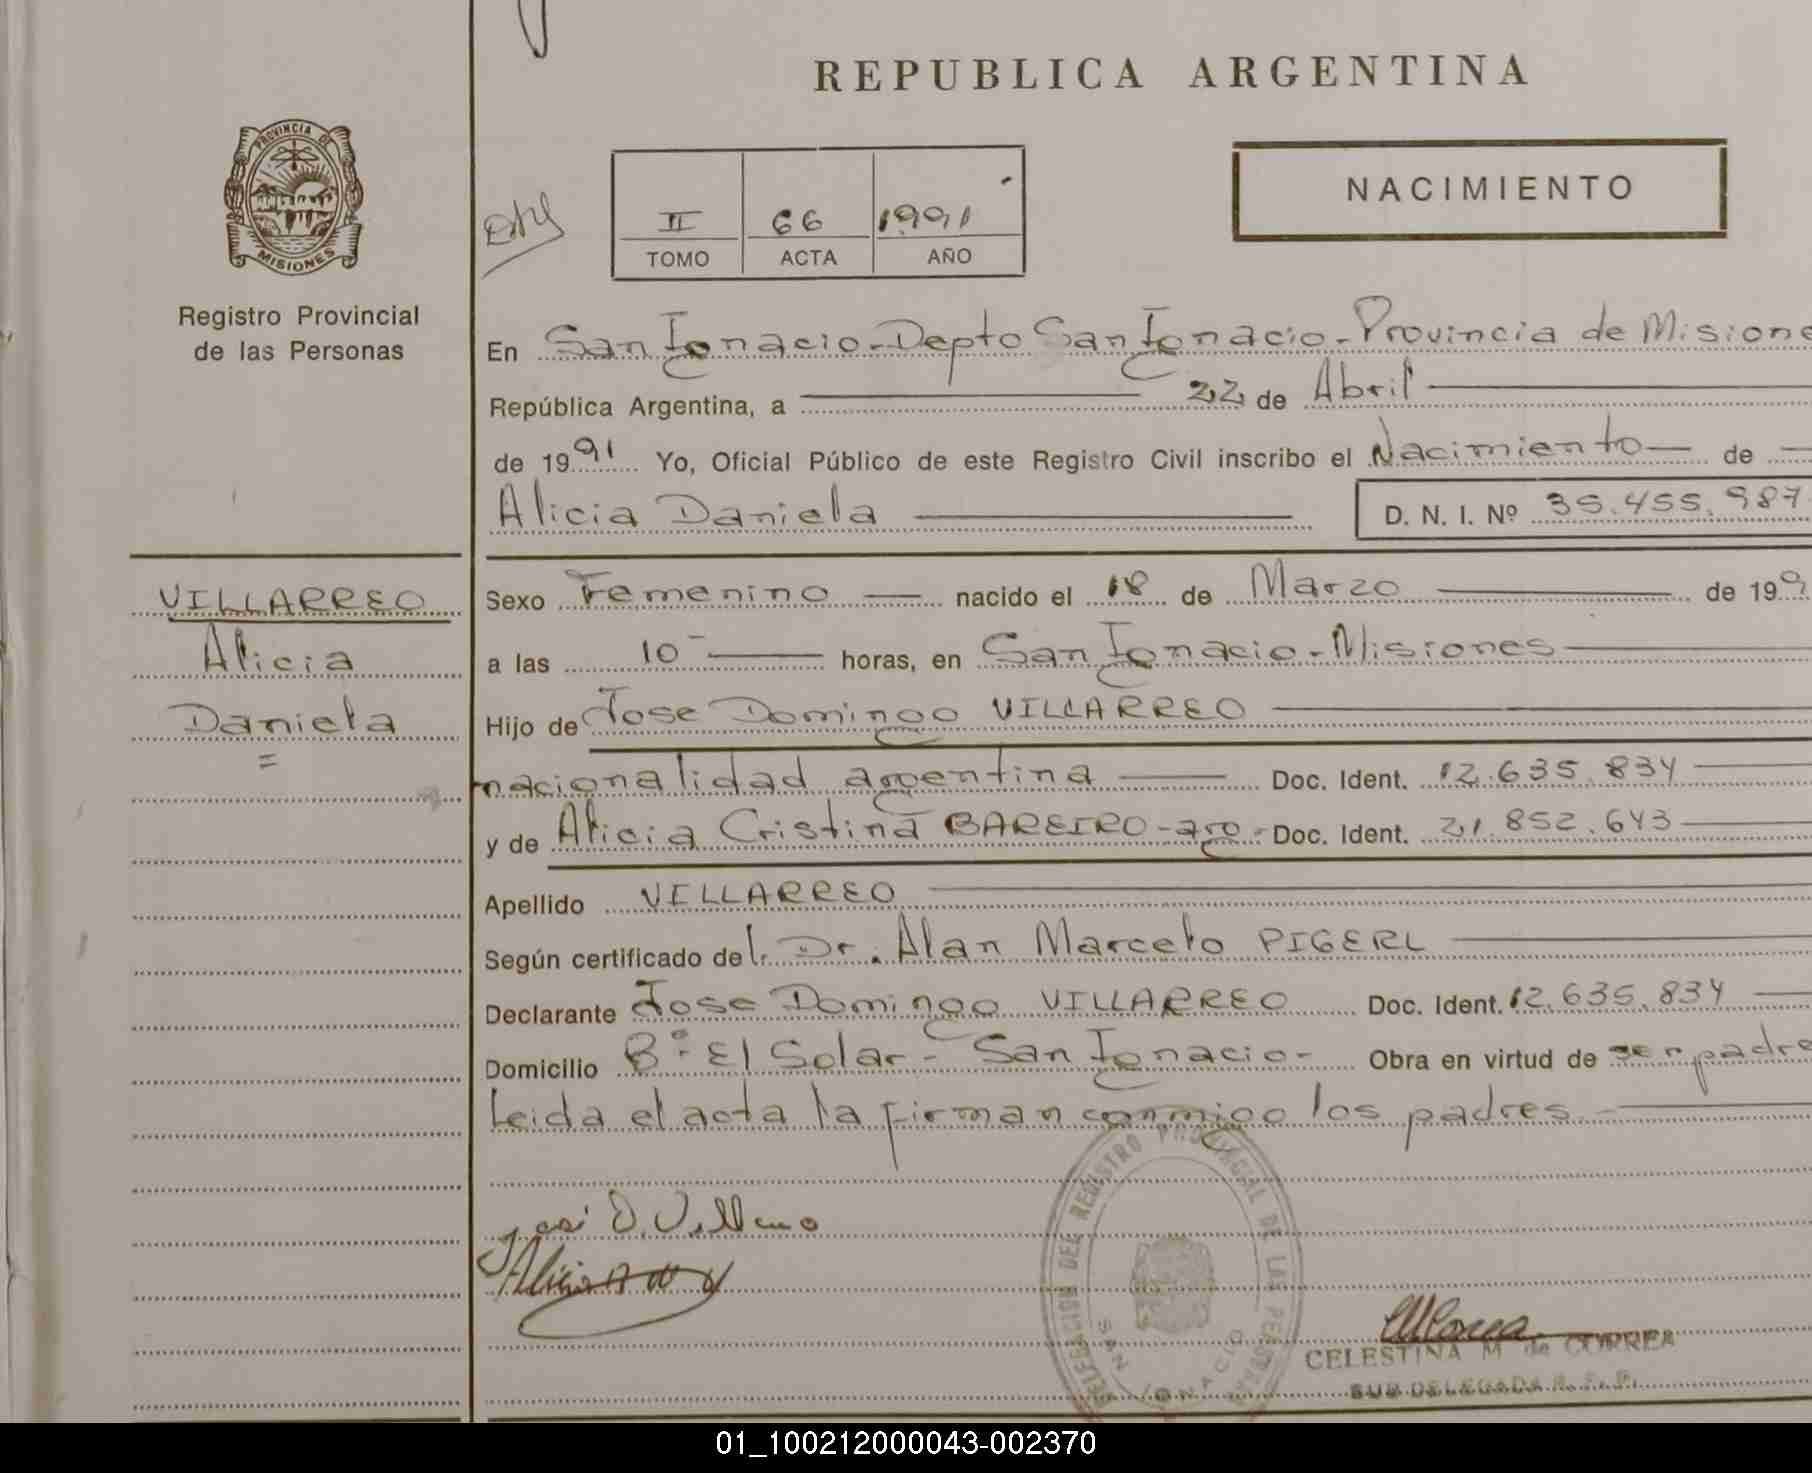 REPUBLICA ARGENTINA
PROVINCIA DE
MISIONES
Registro Provincial
de las Personas
II 66 1991
TOMO ACTA AÑO
NACIMIENTO
En San Ignacio - Depto San Ignacio - Provincia de Misione
República Argentina, a 22 de Abril
de 1991 Yo, Oficial Público de este Registro Civil inscribo el Nacimiento de
Alicia Daniela D. N. I. Nº 35.455.987
VILLARREO
Alicia
Daniela
=
Sexo Femenino nacido el 18 de Marzo de 199
a las 10 horas, en San Ignacio - Misiones
Hijo de Jose Domingo VILLARREO
nacionalidad argentina Doc. Ident. 12.635.834
y de Alicia Cristina BAREIRO - arg - Doc. Ident. 21.852.643
Apellido VILLARREO
Según certificado del. Dr. Alan Marcelo PIGERL
Declarante Jose Domingo VILLARREO Doc. Ident. 12.635.834
Domicilio Bº El Solar - San Ignacio - Obra en virtud de ser padre
Leida el acta la firman conmigo los padres.-
José D. Villarreo
Alicia
DELEGACION DEL REGISTRO PROVINCIAL DE LAS PERSONAS
SAN IGNACIO
CELESTINA M. de CORREA
SUB DELEGADA R. P. P.
01_100212000043-002370